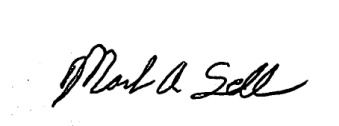 Mark A Sell